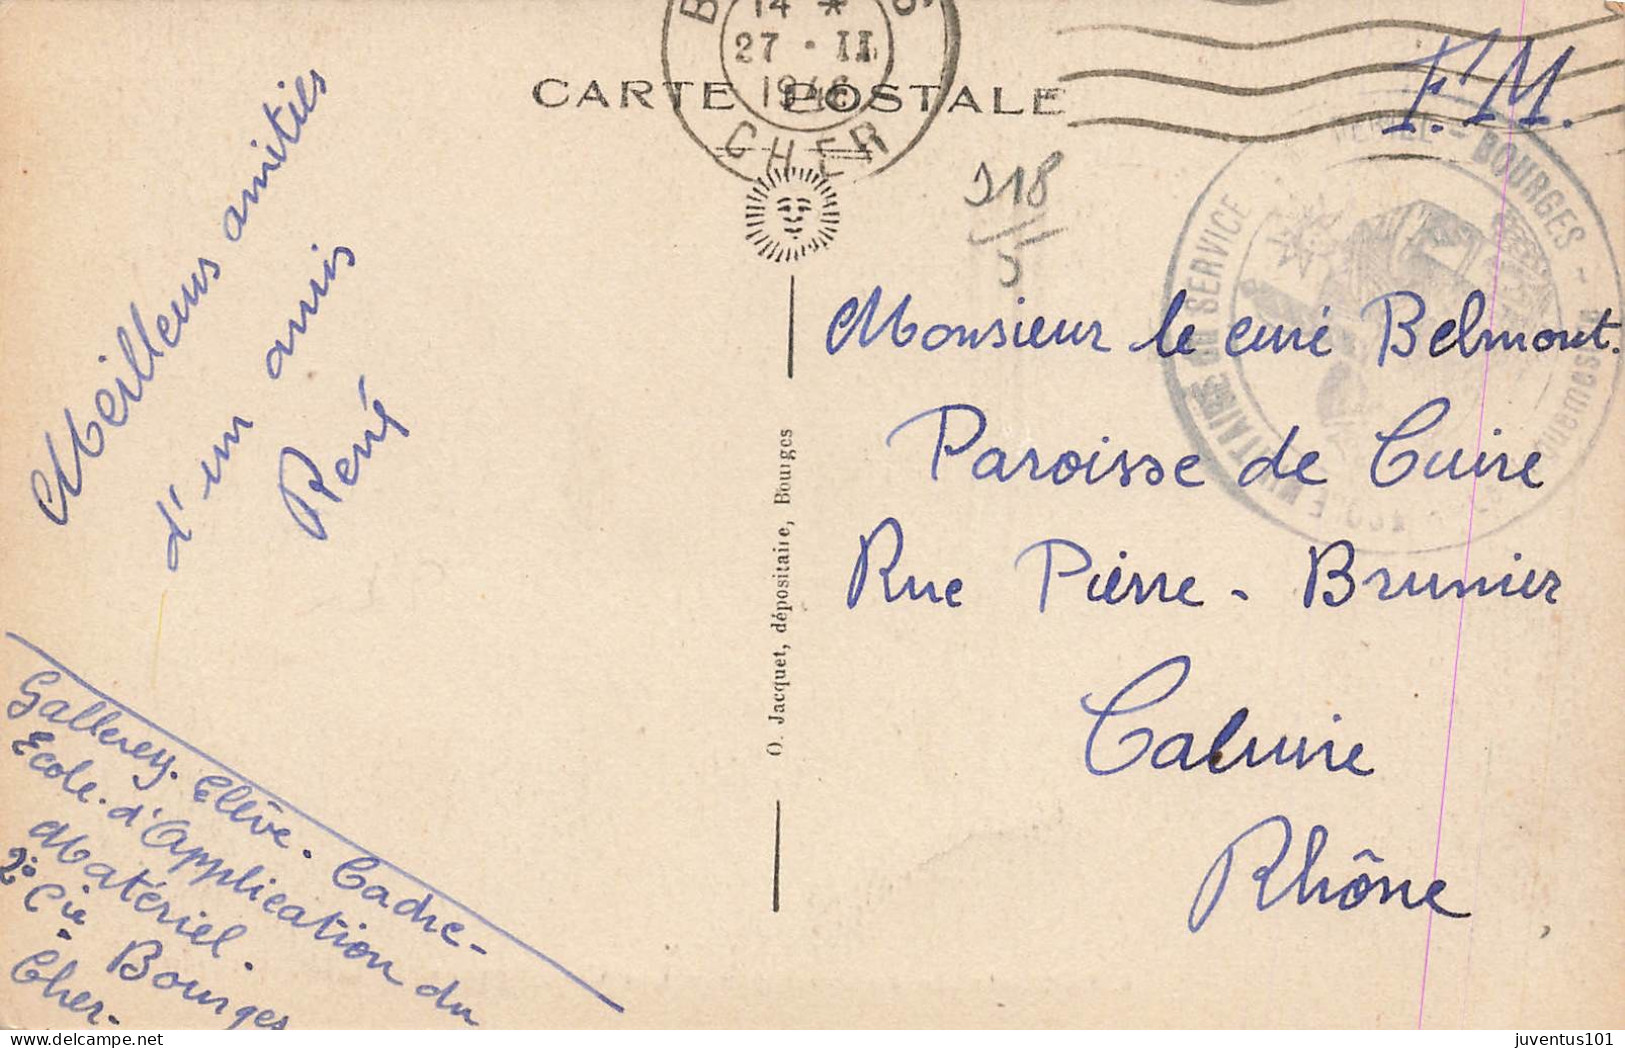 B
14 *
27 · II
1946
CHER
CARTE POSTALE
F.M.
218
5
BOURGES -
SERVICE
Meilleurs amitiés
d'un amis
René
Monsieur le curé Belmont.
Paroisse de Cuire
Rue Pierre - Brunier
Caluire
Rhône
O. Jacquet, dépositaire, Bourges
Gallerey. Elève. Cadre-
Ecole. d'Application du
Matériel.
2° Cie Bourges
Cher.
www.delcampe.net
juventus101